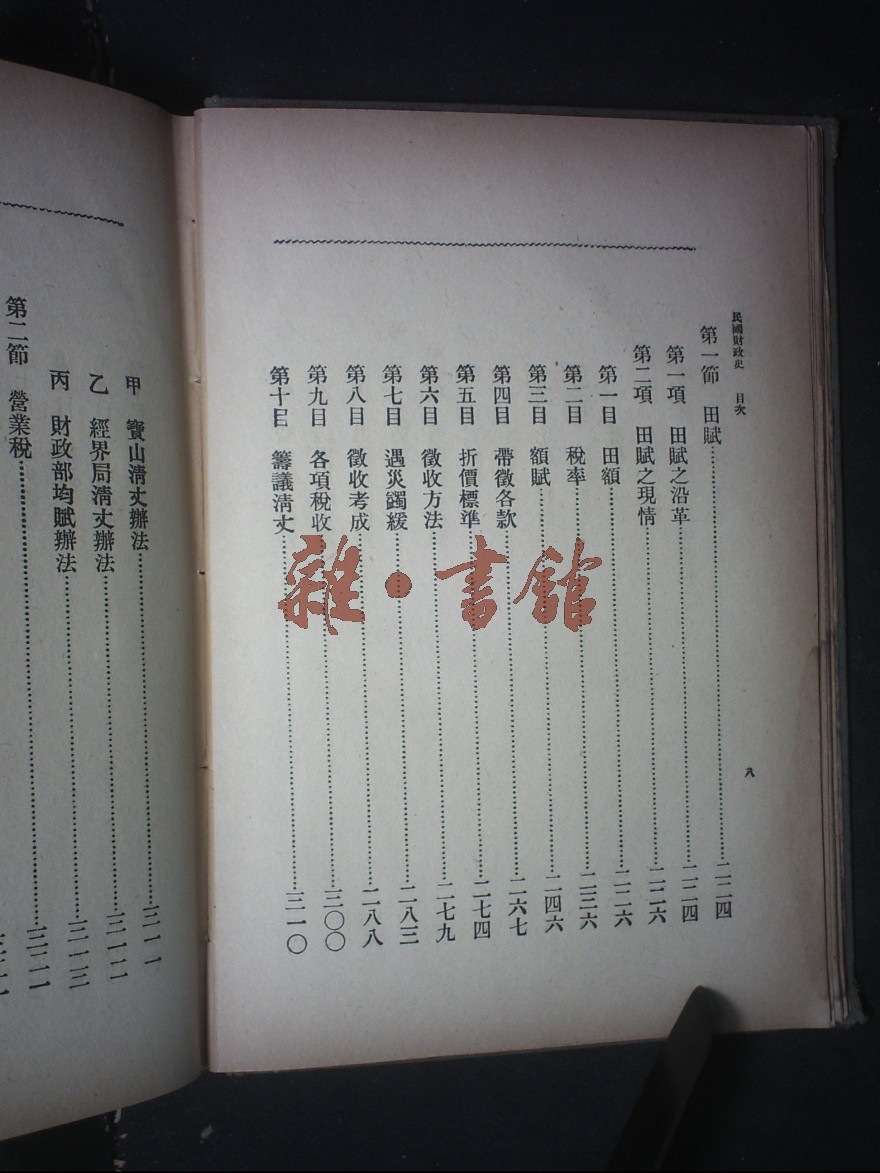 民國財政史 目次
八
第一節 田賦……二二四
第一項 田賦之沿革……二二四
第二項 田賦之現情……二二六
第一目 田額……二二六
第二目 稅率……二三六
第三目 額賦……二四六
第四目 帶徵各款……二六七
第五目 折價標準……二七四
第六目 徵收方法……二七九
第七目 遇災蠲緩……二八三
第八目 徵收考成……二八八
第九目 各項稅收……三〇〇
第十目 籌議淸丈……三一〇
甲 寶山淸丈辦法……三一一
乙 經界局淸丈辦法……三一二
丙 財政部均賦辦法……三一三
第二節 營業稅……三二一
雜·書館